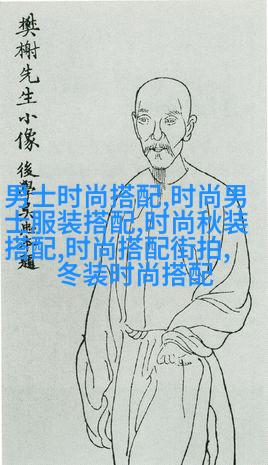 樊榭先生小像
後學
題
男士时尚搭配,时尚男
士服装搭配,时尚秋装
搭配,时尚搭配街拍,
冬装时尚搭配